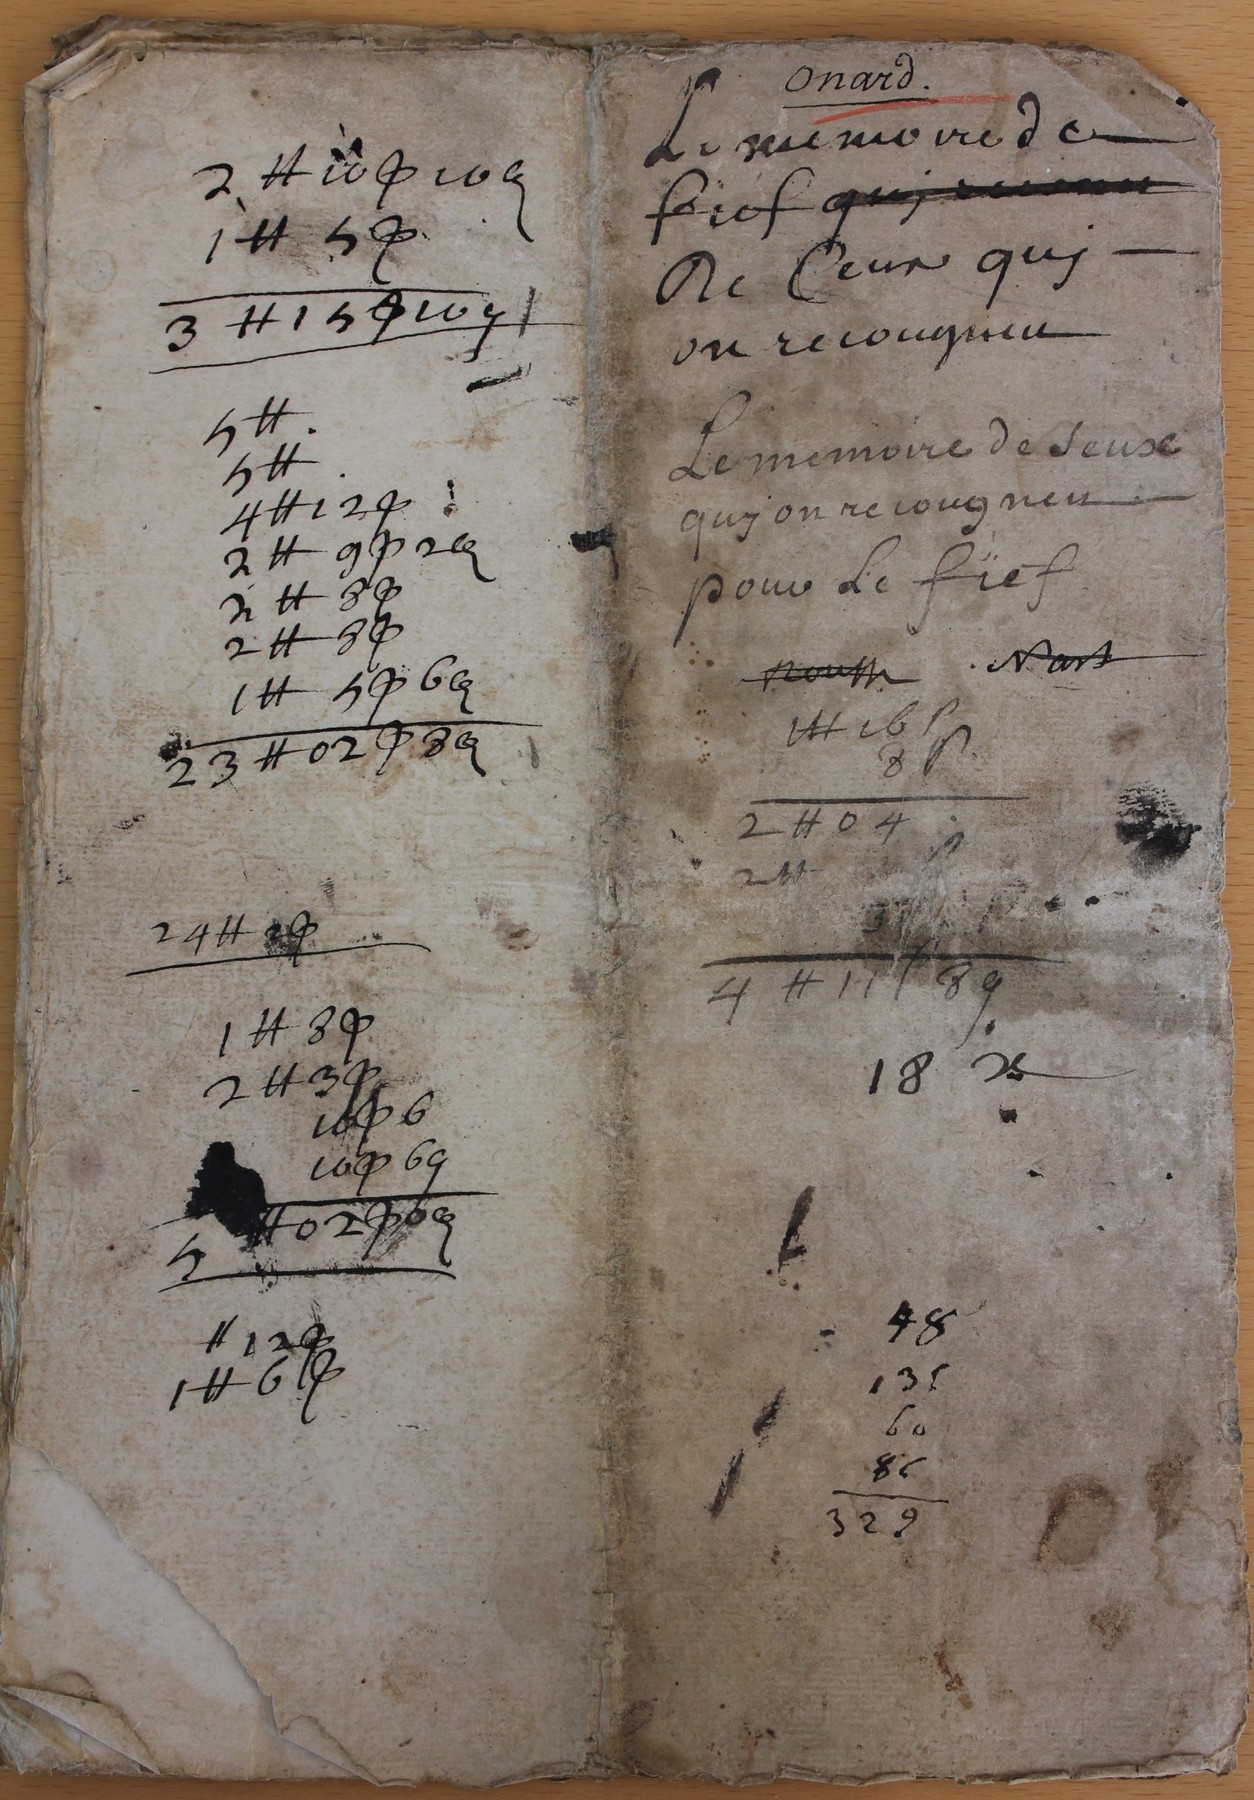 2 ₶ 10 ſ 10 ₰
1 ₶ 5 ſ
3 ₶ 15 ſ 10 ₰
5 ₶.
5 ₶.
4 ₶ 12 ſ
2 ₶ 9 ſ 2 ₰
2 ₶ 8 ſ
2 ₶ 8 ſ
1 ₶ 5 ſ 6 ₰
23 ₶ 02 ſ 8 ₰
24 ₶ 2 ſ
1 ₶ 8 ſ
2 ₶ 3 ſ
10 ſ 6
10 ſ 6 ₰
5 ₶ 02 ſ 0 ₰
₶ 12 ſ
1 ₶ 6 ſ
onard.
Le memoire de
fief quj
De Ceux quj
on recougneu
Le memoire de seuxe
quj on recougneu
pour Le fief
1 ₶ 16 ſ
8 ſ
2 ₶ 0 4
2 ₶
4 ₶ 11 ſ 8 ₰
18
48
135
60
86
329